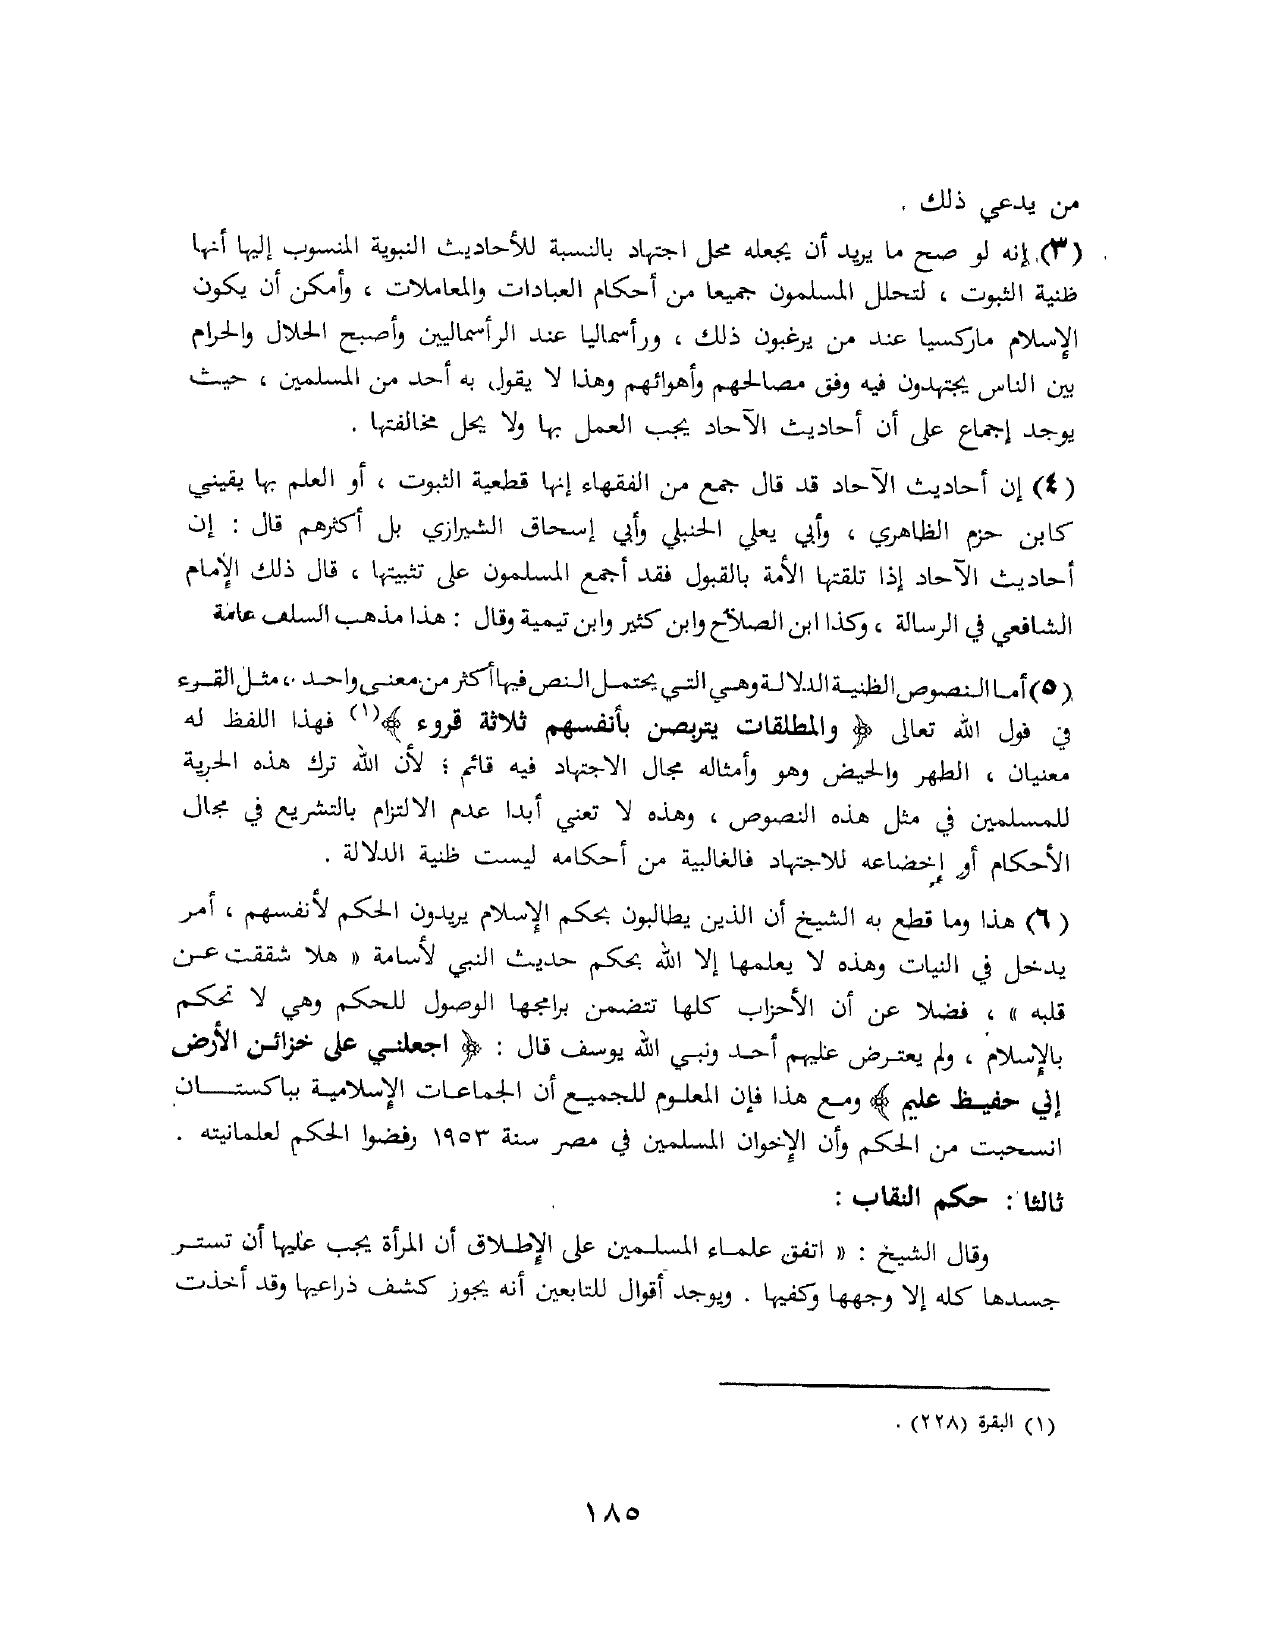 من يدعي ذلك .
(٣) إنه لو صح ما يريد أن يجعله محل اجتهاد بالنسبة للأحاديث النبوية المنسوب إليها أنها
ظنية الثبوت ، لتحلل المسلمون جميعا من أحكام العبادات والمعاملات ، وأمكن أن يكون
الإسلام ماركسيا عند من يرغبون ذلك ، ورأسماليا عند الرأسماليين وأصبح الحلال والحرام
بين الناس يجتهدون فيه وفق مصالحهم وأهوائهم وهذا لا يقول به أحد من المسلمين ، حيث
يوجد إجماع على أن أحاديث الآحاد يجب العمل بها ولا يحل مخالفتها .
(٤) إن أحاديث الآحاد قد قال جمع من الفقهاء إنها قطعية الثبوت ، أو العلم بها يقيني
كابن حزم الظاهري ، وأبي يعلي الحنبلي وأبي إسحاق الشيرازي بل أكثرهم قال : إن
أحاديث الآحاد إذا تلقتها الأمة بالقبول فقد أجمع المسلمون على تثبيتها ، قال ذلك الإمام
الشافعي في الرسالة ، وكذا ابن الصلاح وابن كثير وابن تيمية وقال : هذا مذهب السلف عامة
(٥) أما النصوص الظنية الدلالة وهي التي يحتمل النص فيها أكثر من معنى واحد ، مثل القرء
في قول الله تعالى ﴿ والمطلقات يتربصن بأنفسهم ثلاثة قروء ﴾(١) فهذا اللفظ له
معنيان ، الطهر والحيض وهو وأمثاله مجال الاجتهاد فيه قائم ؛ لأن الله ترك هذه الحرية
للمسلمين في مثل هذه النصوص ، وهذه لا تعني أبدا عدم الالتزام بالتشريع في مجال
الأحكام أو إخضاعه للاجتهاد فالغالبية من أحكامه ليست ظنية الدلالة .
(٦) هذا وما قطع به الشيخ أن الذين يطالبون بحكم الإسلام يريدون الحكم لأنفسهم ، أمر
يدخل في النيات وهذه لا يعلمها إلا الله بحكم حديث النبي لأسامة « هلا شققت عن
قلبه » ، فضلا عن أن الأحزاب كلها تتضمن برامجها الوصول للحكم وهي لا تحكم
بالإسلام ، ولم يعترض عليهم أحد ونبي الله يوسف قال : ﴿ اجعلني على خزائن الأرض
إني حفيظ عليم ﴾ ومع هذا فإن المعلوم للجميع أن الجماعات الإسلامية بباكستان
انسحبت من الحكم وأن الإخوان المسلمين في مصر سنة ١٩٥٣ رفضوا الحكم لعلمانيته .
ثالثا : حكم النقاب :
وقال الشيخ : « اتفق علماء المسلمين على الإطلاق أن المرأة يجب عليها أن تستر
جسدها كله إلا وجهها وكفيها . ويوجد أقوال للتابعين أنه يجوز كشف ذراعيها وقد أخذت
(١) البقرة (٢٢٨) .
١٨٥